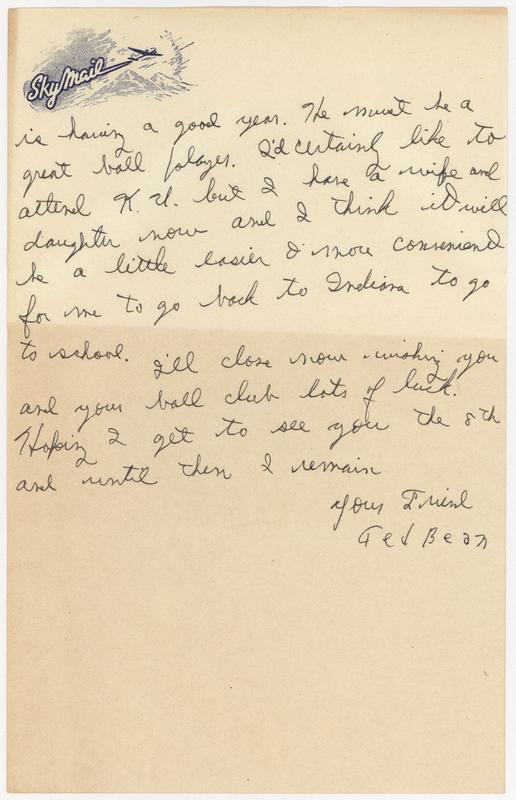 Sky Mail
is having a good year. He must be a
great ball player. I'd certainly like to
attend K.U. but I have a wife and
daughter now and I think it will
be a little easier & more convenient
for me to go back to Indiana to go
to school. I'll close now wishing you
and your ball club lots of luck.
Hoping I get to see you the 8th
and until then I remain
Your Friend
Ted Bean